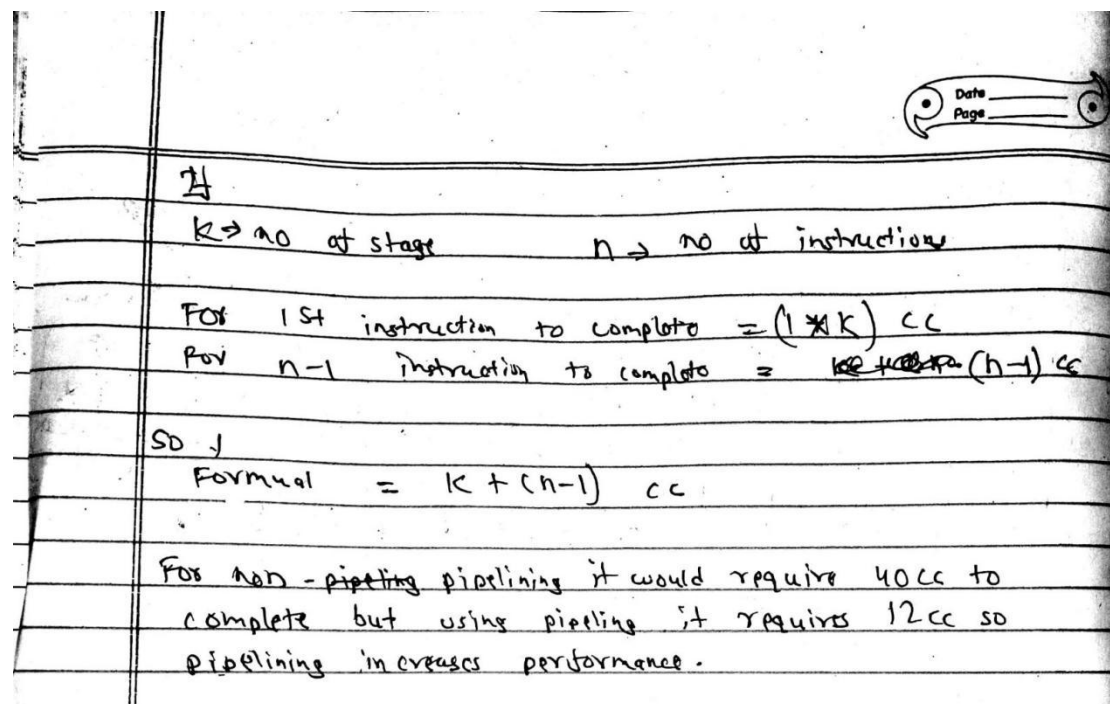 Date
Page
If
k → no of stage n → no of instructions
For 1st instruction to complete = (1 * k) cc
For n-1 instruction to complete = (n-1) cc
so,
Formual = k + (n-1) cc
For non - pipeling pipelining it would require 40cc to
complete but using pipeling it requires 12cc so
pipelining increases performance.